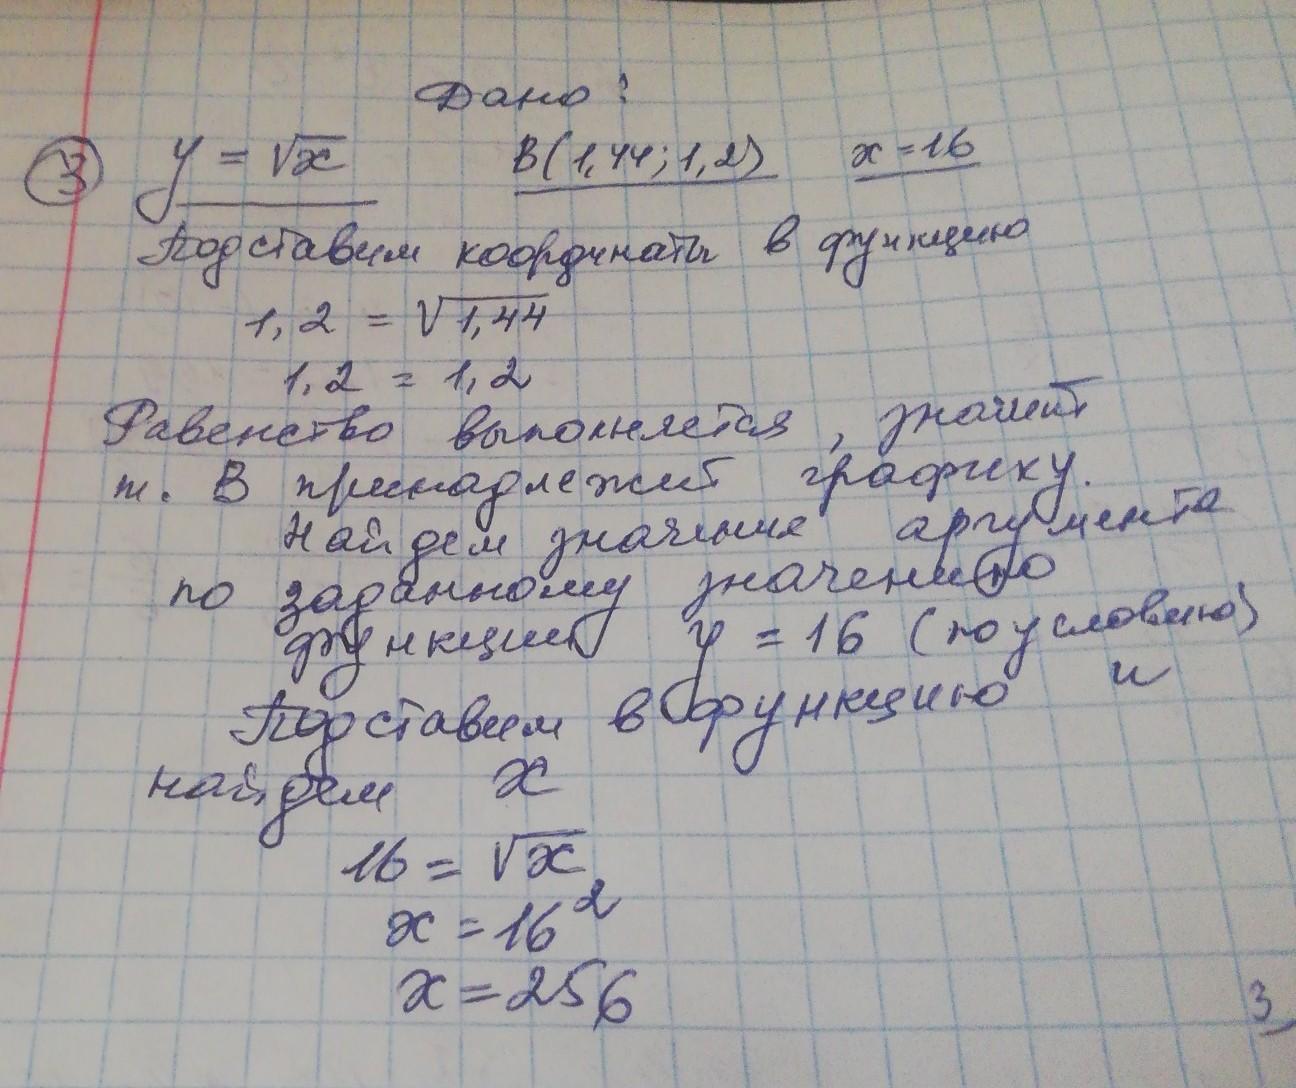 Дано:
3 y = √x B(1,44; 1,2) x = 16
Подставим координаты в функцию
1,2 = √1,44
1,2 = 1,2
Равенство выполняется, значит
т. В принадлежит графику.
Найдем значение аргумента
по заданному значению
функции y = 16 (по условию)
Подставим в функцию и
найдем x
16 = √x
x = 16²
x = 256
3